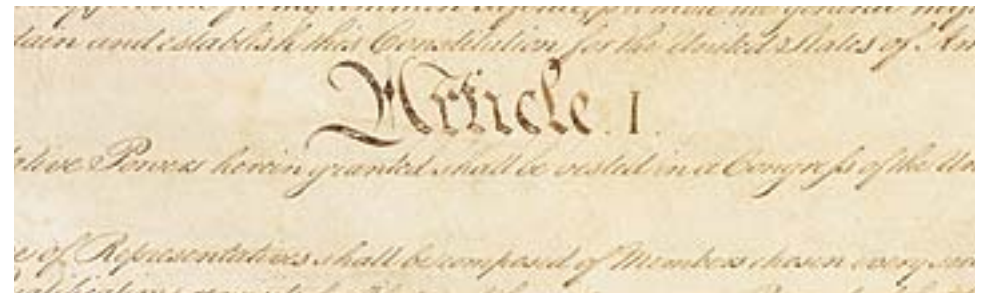 dain and establish this Constitution for the United States of Am
Article. I.
lative Powers herein granted shall be vested in a Congress of the Un
e of Representatives shall be composed of Members chosen every sec